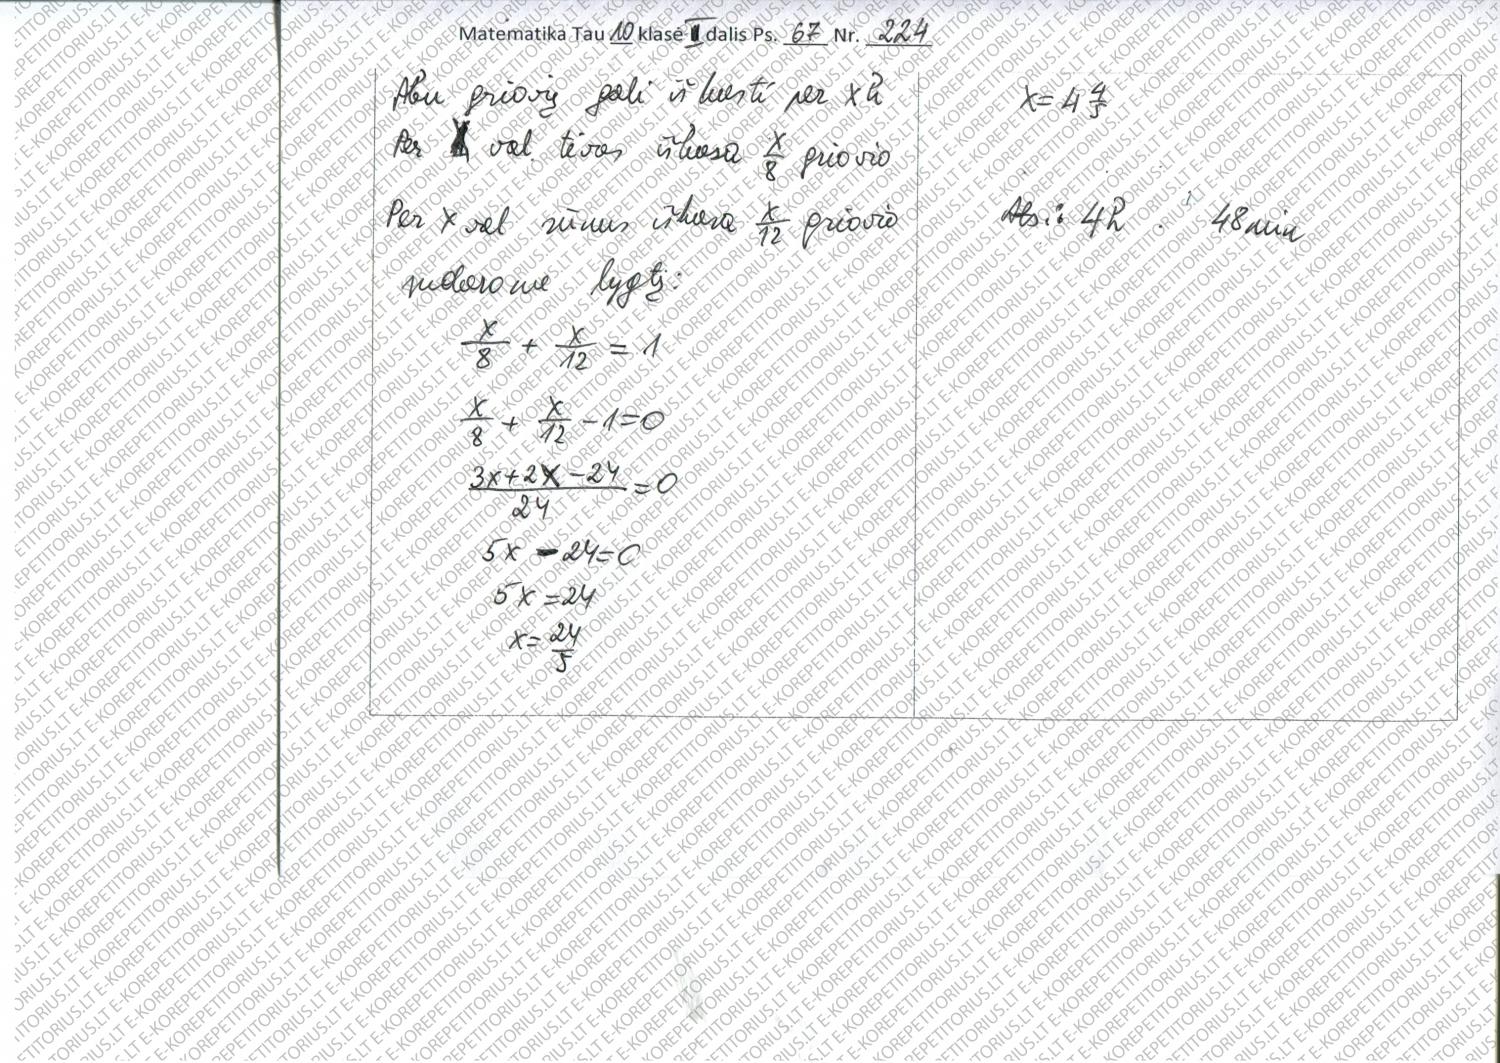 Matematika Tau 10 klasė II dalis Ps. 67 Nr. 224
Abu griovį gali iškasti per x h
Per x val tėvas iškasa x/8 griovio
Per x val sūnus iškasa x/12 griovio
sudarome lygtį:
x/8 + x/12 = 1
x/8 + x/12 - 1 = 0
3x+2x-24/24 = 0
5x - 24 = 0
5x = 24
x = 24/5
x = 4 4/5
Ats.: 4h 48min
E-KOREPETITORIUS.LT